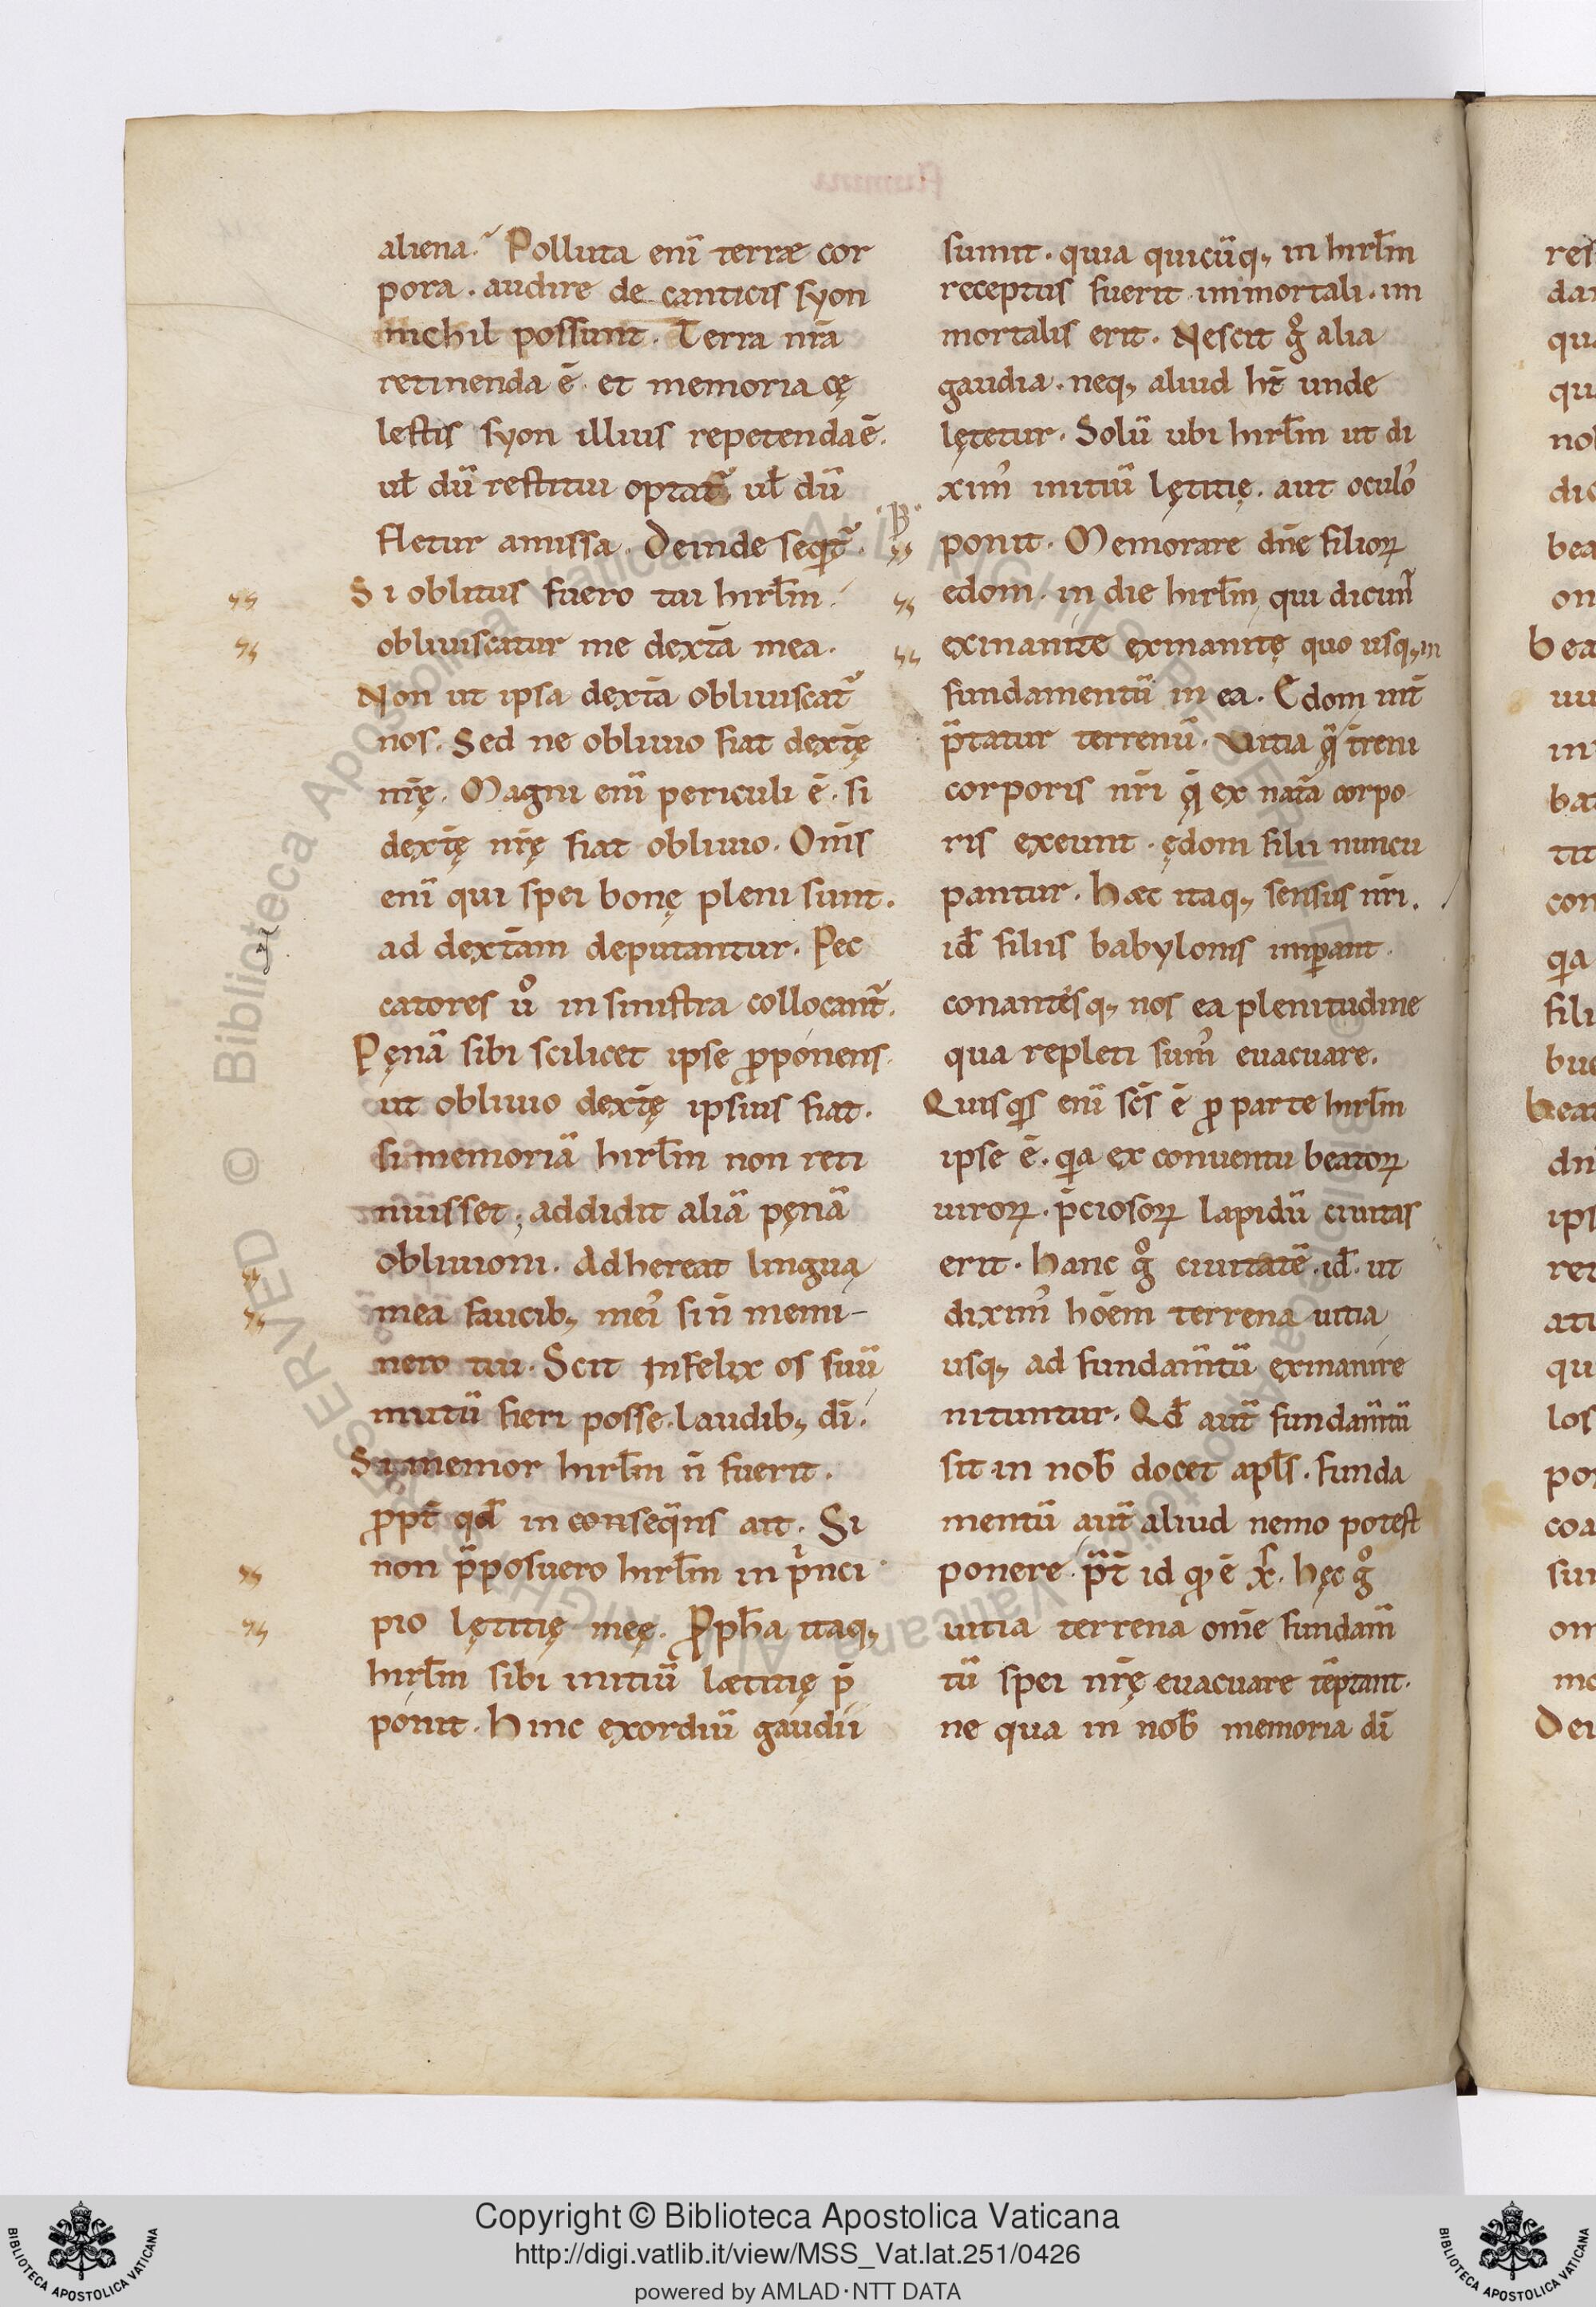 aliena. Polluta enī terræ cor
pora. audire de canticis syon
nichil possunt. Terra nr̄a
retinenda ē. et memoria cę
lestis syon illius repetenda ē.
ul̄ dū restitui optat᷑ ul̄ dū
fletur amissa. Deinde seqr̄.
Si oblitus fuero tui hirl̄m.
obliuiscatur me dext̄a mea.
Non ut ipsa dext̄a obliuiscat᷑
nos. Sed ne obliuio fiat dext̄ę
nr̄ę. Magni enī periculi ē. si
dext̄ę nr̄ę fiat obliuio. Om̄s
enī qui spei bonę pleni sunt.
ad dext̄am deputantur. Pec
catores uͦ in sinistra collocant᷑.
Pęnā sibi scilicet ipse ꝓponens.
ut obliuio dext̄ę ipsius fiat.
si memoriā hirl̄m non reti
nuisset; addidit aliā pęnā
obliuioni. Adhereat lingua
mea faucib; meis᾽ si n̄ memi-
nero tui. Scit infelix os suū
mutū fieri posse laudib; dī.
Si memor hirl̄m n̄ fuerit.
ꝓpt̄ qd̄ in conseq̄ns ait. Si
non p̄posuero hirl̄m in pͥnci
pio lętitię meę. Ꝓph̄a itaq;
hirl̄m sibi initiū lætitię p̄
ponit. Hinc exordiū gaudii
sumit. quia quicūq; in hirl̄m
receptus fuerit immortali. im
mortalis erit. Nescit gͦ alia
gaudia. neq; aliud ht̄ unde
lętetur. Solū ubi hirl̄m ut di
xim᾽ initiū lętitię. aut oculo᾽
ponit. Memorare dn̄e filioꝝ
edom. in die hirl̄m qui dicun᷑t
exinanite exinanitę quo usq; in
fundamentū in ea. Edom int̄
p̄tatur terrenū. Uitia q̄ t̄reni
corporis nr̄i q̄ ex nat̄a corpo
ris exeunt. ędom filii nuncu
pantur. Hæc itaq; sensus nr̄i.
id̄ filiis babylonis imꝑant.
conantesq; nos ea plenitudine
qua repleti sum᾽ euacuare.
Quisqͥs enī sc̄s ē ꝓ parte hirl̄m
ipse ē. qͥa ex conuentu beatoꝝ
uiroꝝ. p̄ciosoꝝ lapidū ciuitas
erit. Hanc gͦ ciuitatē. id̄. ut
dixim᾽ hoēm terrena uitia
usq; ad fundam̄tū exinanire
nituntur. Qd̄ aut̄ fundam̄tū
sit in nob̄ docet apl̄s. funda
mentū aut̄ aliud nemo potest
ponere. p̄t̄ id qͦ ē xp̄s. Hęc gͦ
uitia terrena om̄e fundam̄
tū spei nr̄ę euacuare tēptant.
ne qua in nob̄ memoria dī
Copyright © Biblioteca Apostolica Vaticana
http://digi.vatlib.it/view/MSS_Vat.lat.251/0426
powered by AMLAD·NTT DATA